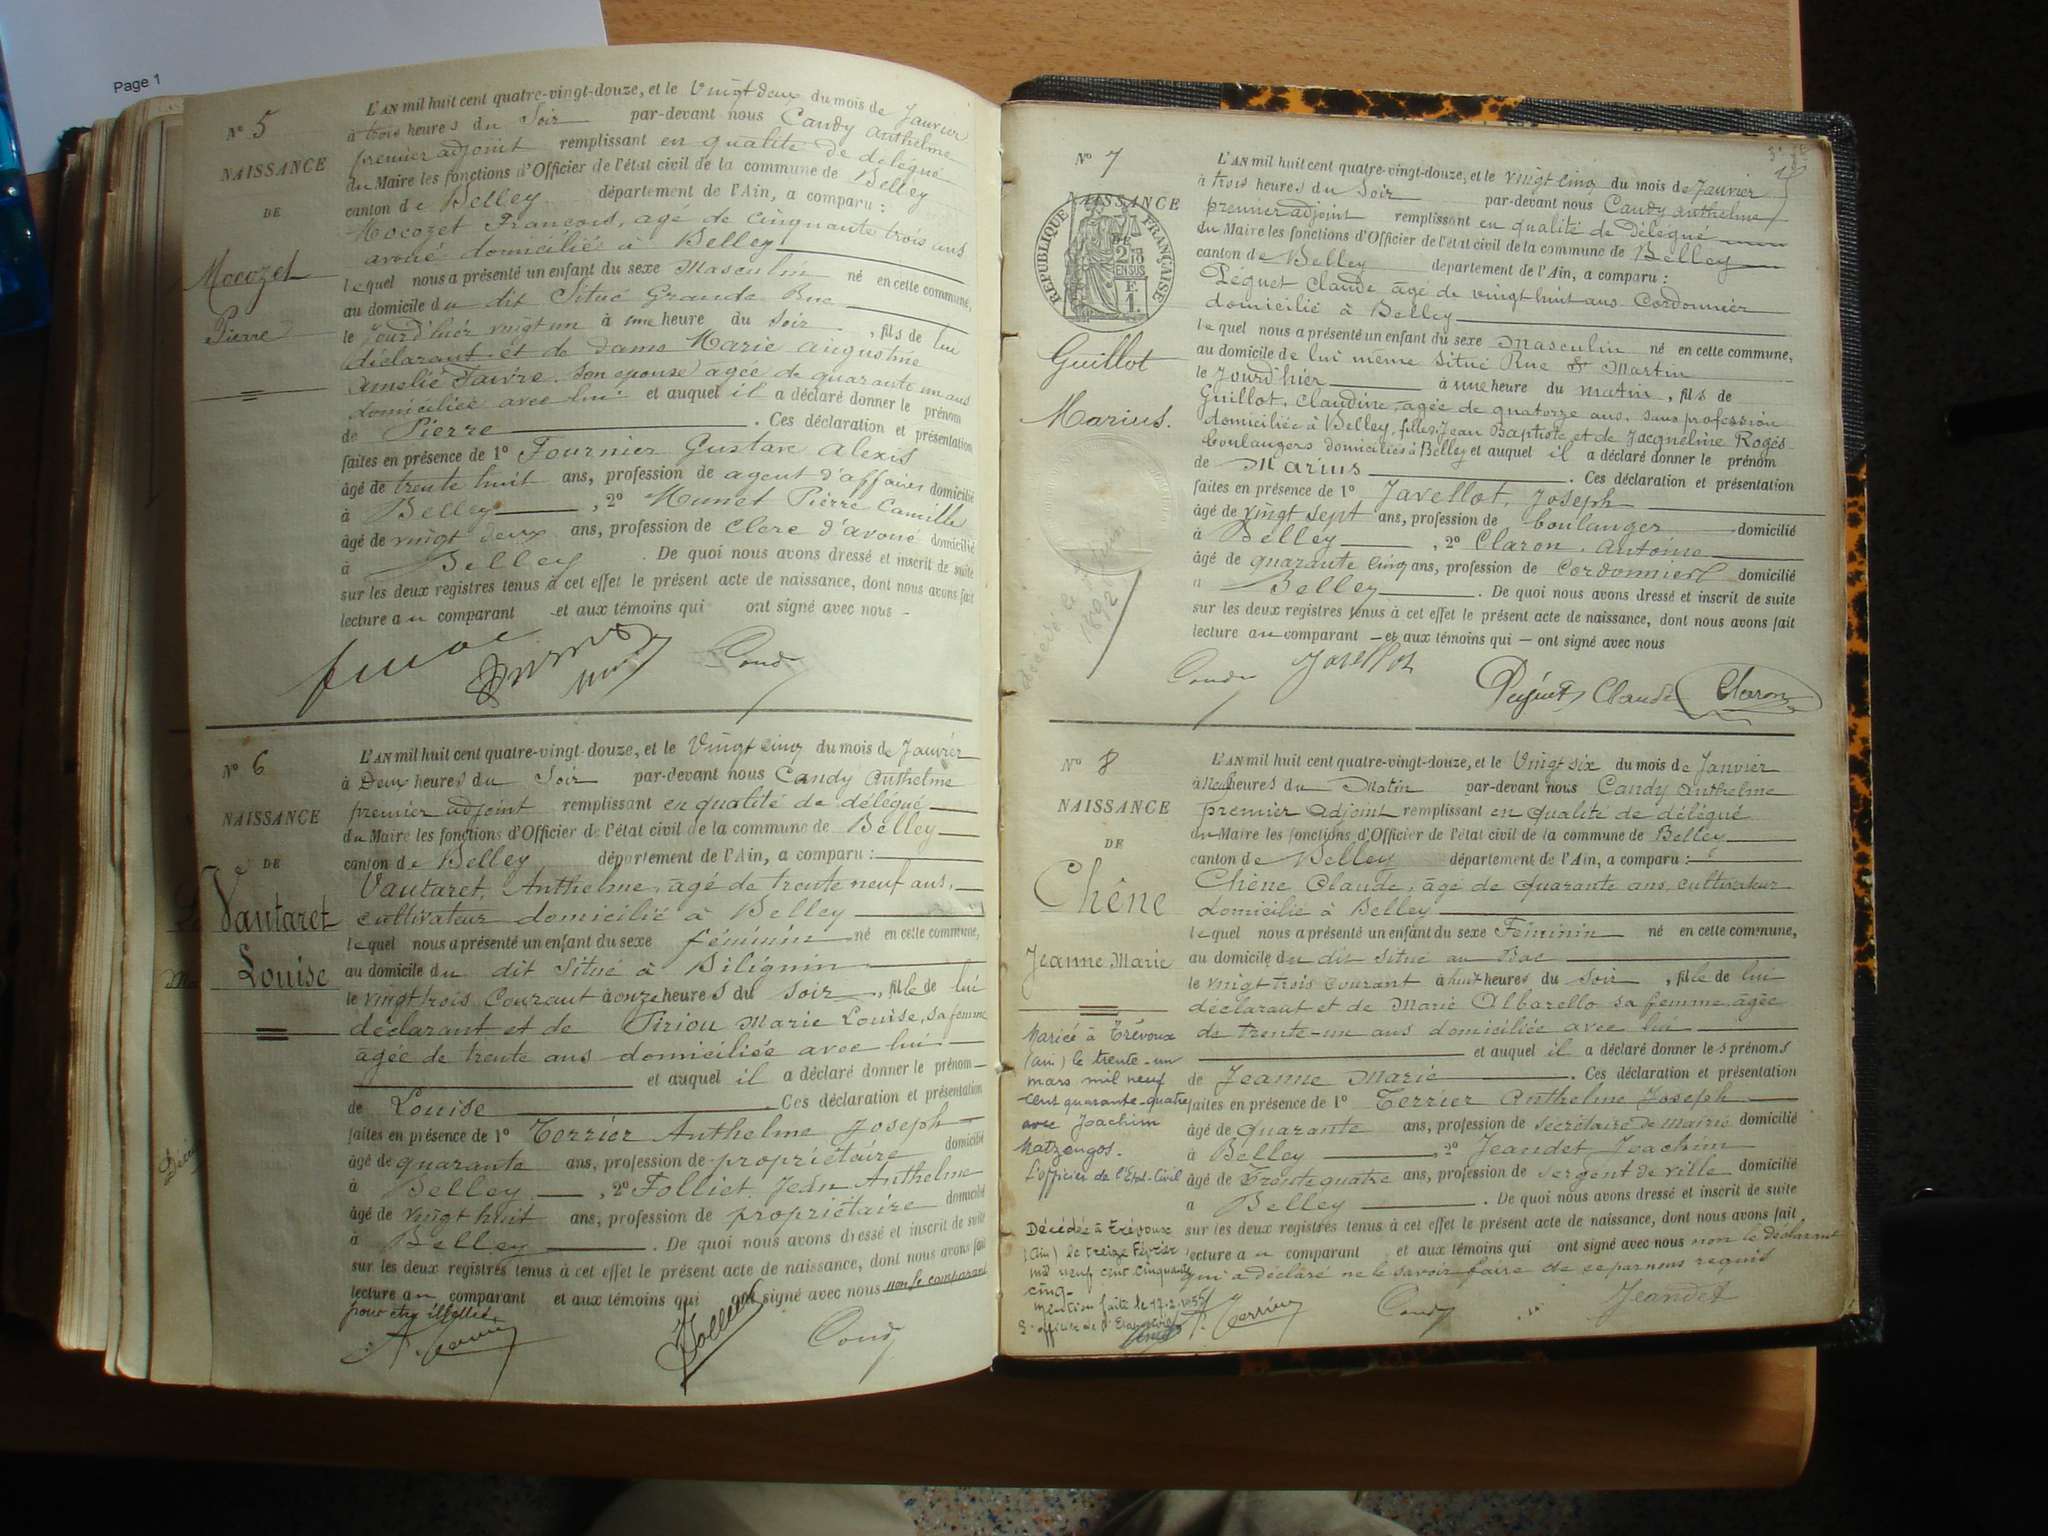 Page 1
N° 5
NAISSANCE
DE
Mocozet
Pierre
L'AN mil huit cent quatre-vingt-douze, et le Vingt deux du mois de Janvier
à trois heures du Soir par-devant nous Candy Anthelme
premier adjoint remplissant en qualité de délégué
du Maire les fonctions d'Officier de l'état civil de la commune de Belley
canton de Belley département de l'Ain, a comparu :
Mocozet François, agé de cinquante trois ans
avoué domicilié à Belley
lequel nous a présenté un enfant du sexe Masculin né en cette commune,
au domicile du dit Situé Grande Rue
le jourd'hier vingt un à une heure du Soir, fils de lui
déclarant et de dame Marie Augustine
Amélie Faivre son épouse agée de quarante un ans
domiciliée avec lui et auquel il a déclaré donner le prénom
de Pierre. Ces déclaration et présentation
faites en présence de 1° Fournier Gustave Alexis
âgé de trente huit ans, profession de agent d'affaires domicilié
à Belley, 2° Munet Pierre Camille
âgé de vingt deux ans, profession de Clerc d'avoué domicilié
à Belley. De quoi nous avons dressé et inscrit de suite
sur les deux registres tenus à cet effet le présent acte de naissance, dont nous avons fait
lecture au comparant et aux témoins qui ont signé avec nous
Candy
N° 6
NAISSANCE
DE
Vautaret
Louise
L'AN mil huit cent quatre-vingt-douze, et le Vingt cinq du mois de Janvier
à Deux heures du Soir par-devant nous Candy Anthelme
premier adjoint remplissant en qualité de délégué
du Maire les fonctions d'Officier de l'état civil de la commune de Belley
canton de Belley département de l'Ain, a comparu :
Vautaret, Anthelme, agé de trente neuf ans,
cultivateur domicilié à Belley
lequel nous a présenté un enfant du sexe féminin né en cette commune,
au domicile du dit situé à Billignin
le vingt trois Courant à onze heures du Soir, fille de lui
déclarant et de Piriou Marie Louise, sa femme
agée de trente ans domiciliée avec lui
et auquel il a déclaré donner le prénom
de Louise. Ces déclaration et présentation
faites en présence de 1° Terrier Anthelme Joseph
âgé de quarante ans, profession de propriétaire domicilié
à Belley, 2° Folliet, Jean Anthelme
âgé de vingt huit ans, profession de propriétaire domicilié
à Belley. De quoi nous avons dressé et inscrit de suite
sur les deux registres tenus à cet effet le présent acte de naissance, dont nous avons fait
lecture au comparant et aux témoins qui ont signé avec nous non le comparant
pour être illettré
A. Terrier Folliet Candy
N° 7
NAISSANCE
DE
RÉPUBLIQUE FRANÇAISE
Guillot
Marius.
décédé le
1892
L'AN mil huit cent quatre-vingt-douze, et le vingt cinq du mois de Janvier
à trois heures du Soir par-devant nous Candy Anthelme
premier adjoint remplissant en qualité de délégué
du Maire les fonctions d'Officier de l'état civil de la commune de Belley
canton de Belley département de l'Ain, a comparu :
Péguet Claude agé de vingt huit ans Cordonnier
domicilié à Belley
lequel nous a présenté un enfant du sexe Masculin né en cette commune,
au domicile de lui même situé Rue St Martin
le jourd'hier à une heure du matin, fils de
Guillot, Claudine, agée de quatorze ans, sans profession
domiciliée à Belley, fille Jean Baptiste et de Jacqueline Roges
boulangers domiciliés à Belley et auquel il a déclaré donner le prénom
de Marius. Ces déclaration et présentation
faites en présence de 1° Javellot, Joseph
âgé de vingt sept ans, profession de boulanger domicilié
à Belley, 2° Claron, Antoine
âgé de quarante cinq ans, profession de Cordonnier domicilié
à Belley. De quoi nous avons dressé et inscrit de suite
sur les deux registres tenus à cet effet le présent acte de naissance, dont nous avons fait
lecture au comparant et aux témoins qui ont signé avec nous
Candy Javellot
Péguet Claude Claron
N° 8
NAISSANCE
DE
Chêne
Jeanne Marie
Mariée à Trévoux
(Ain) le trente-un
mars mil neuf
cent quarante-quatre
avec Joachim
Matzengos.
L'officier de l'Etat-Civil
Décédée à Trévoux
(Ain) le treize Février
mil neuf cent cinquante
cinq-
mention faite le 17.2.1955
L'AN mil huit cent quatre-vingt-douze, et le Vingt six du mois de Janvier
à Neuf heures du Matin par-devant nous Candy Anthelme
premier adjoint remplissant en qualité de délégué
du Maire les fonctions d'Officier de l'état civil de la commune de Belley
canton de Belley département de l'Ain, a comparu :
Chêne Claude, âgé de quarante ans, cultivateur
domicilié à Belley
lequel nous a présenté un enfant du sexe Féminin né en cette commune,
au domicile du dit situé au Bac
le vingt trois courant à huit heures du Soir, fille de lui
déclarant et de Marie Albarello sa femme âgée
de trente-un ans domiciliée avec lui
et auquel il a déclaré donner les prénoms
de Jeanne Marie. Ces déclaration et présentation
faites en présence de 1° Terrier Anthelme Joseph
âgé de quarante ans, profession de secrétaire de mairie domicilié
à Belley, 2° Jeandet Joachim
âgé de Trente quatre ans, profession de Sergent de ville domicilié
à Belley. De quoi nous avons dressé et inscrit de suite
sur les deux registres tenus à cet effet le présent acte de naissance, dont nous avons fait
lecture au comparant et aux témoins qui ont signé avec nous non le déclarant
qui a déclaré ne le savoir faire de ce par nous requis
A. Terrier Candy Jeandet